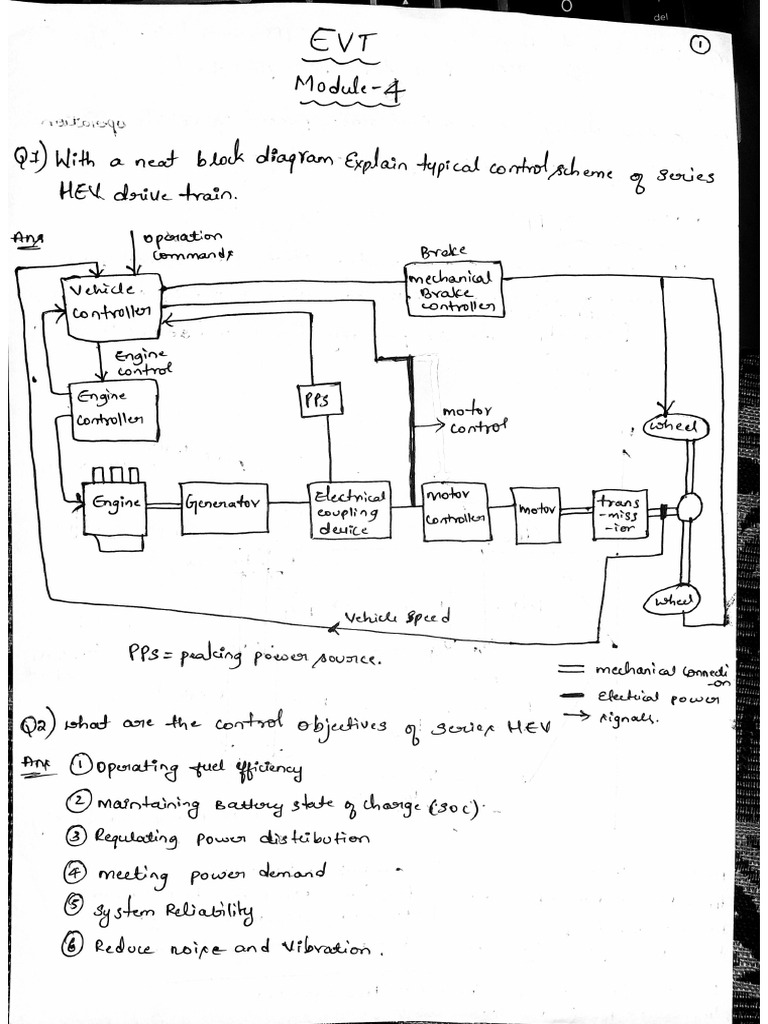 del
EVT
1
Module-4
Q1) With a neat block diagram Explain typical control scheme of series
HEV drive train.
Ans
operation
commands
Brake
Vehicle
controller
mechanical
Brake
controller
Engine
control
PPS
Engine
controller
motor
control
wheel
Engine
Generator
Electrical
coupling
device
motor
controller
motor
trans
-miss
-ion
wheel
Vehicle speed
PPS = peaking power source.
= mechanical connecti
-on
Electrical power
→ signals.
Q2) what are the control objectives of series HEV
Ans ① Operating fuel efficiency
② Maintaining Battery state of charge (SOC).
③ Regulating power distribution
④ meeting power demand
⑤ System Reliability
⑥ Reduce noise and vibration.